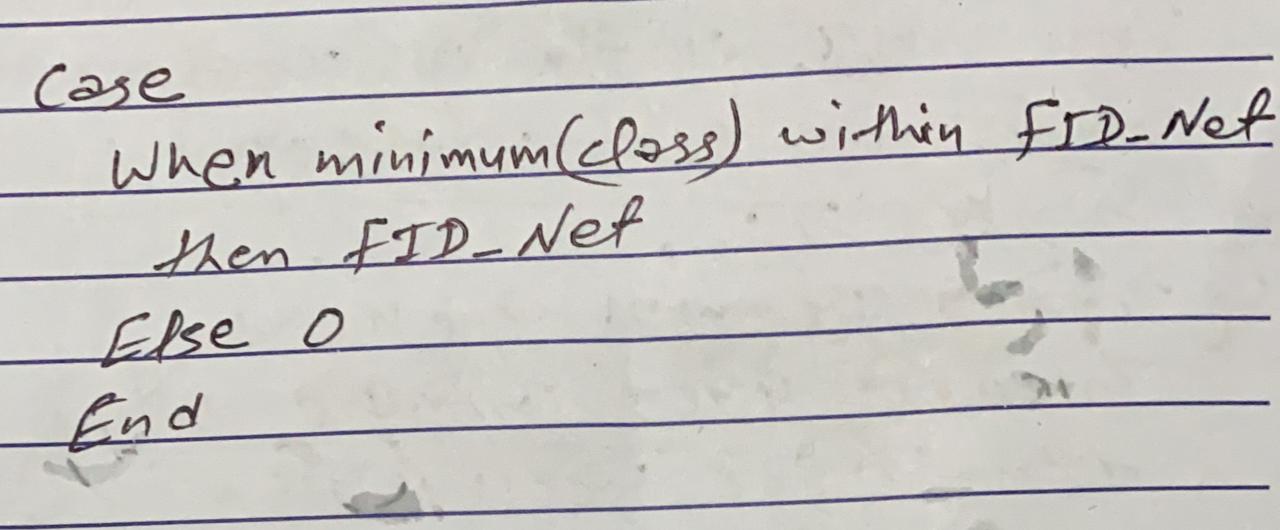 Case
When minimum(class) within FID_Net
then FID_Net
Else 0
End